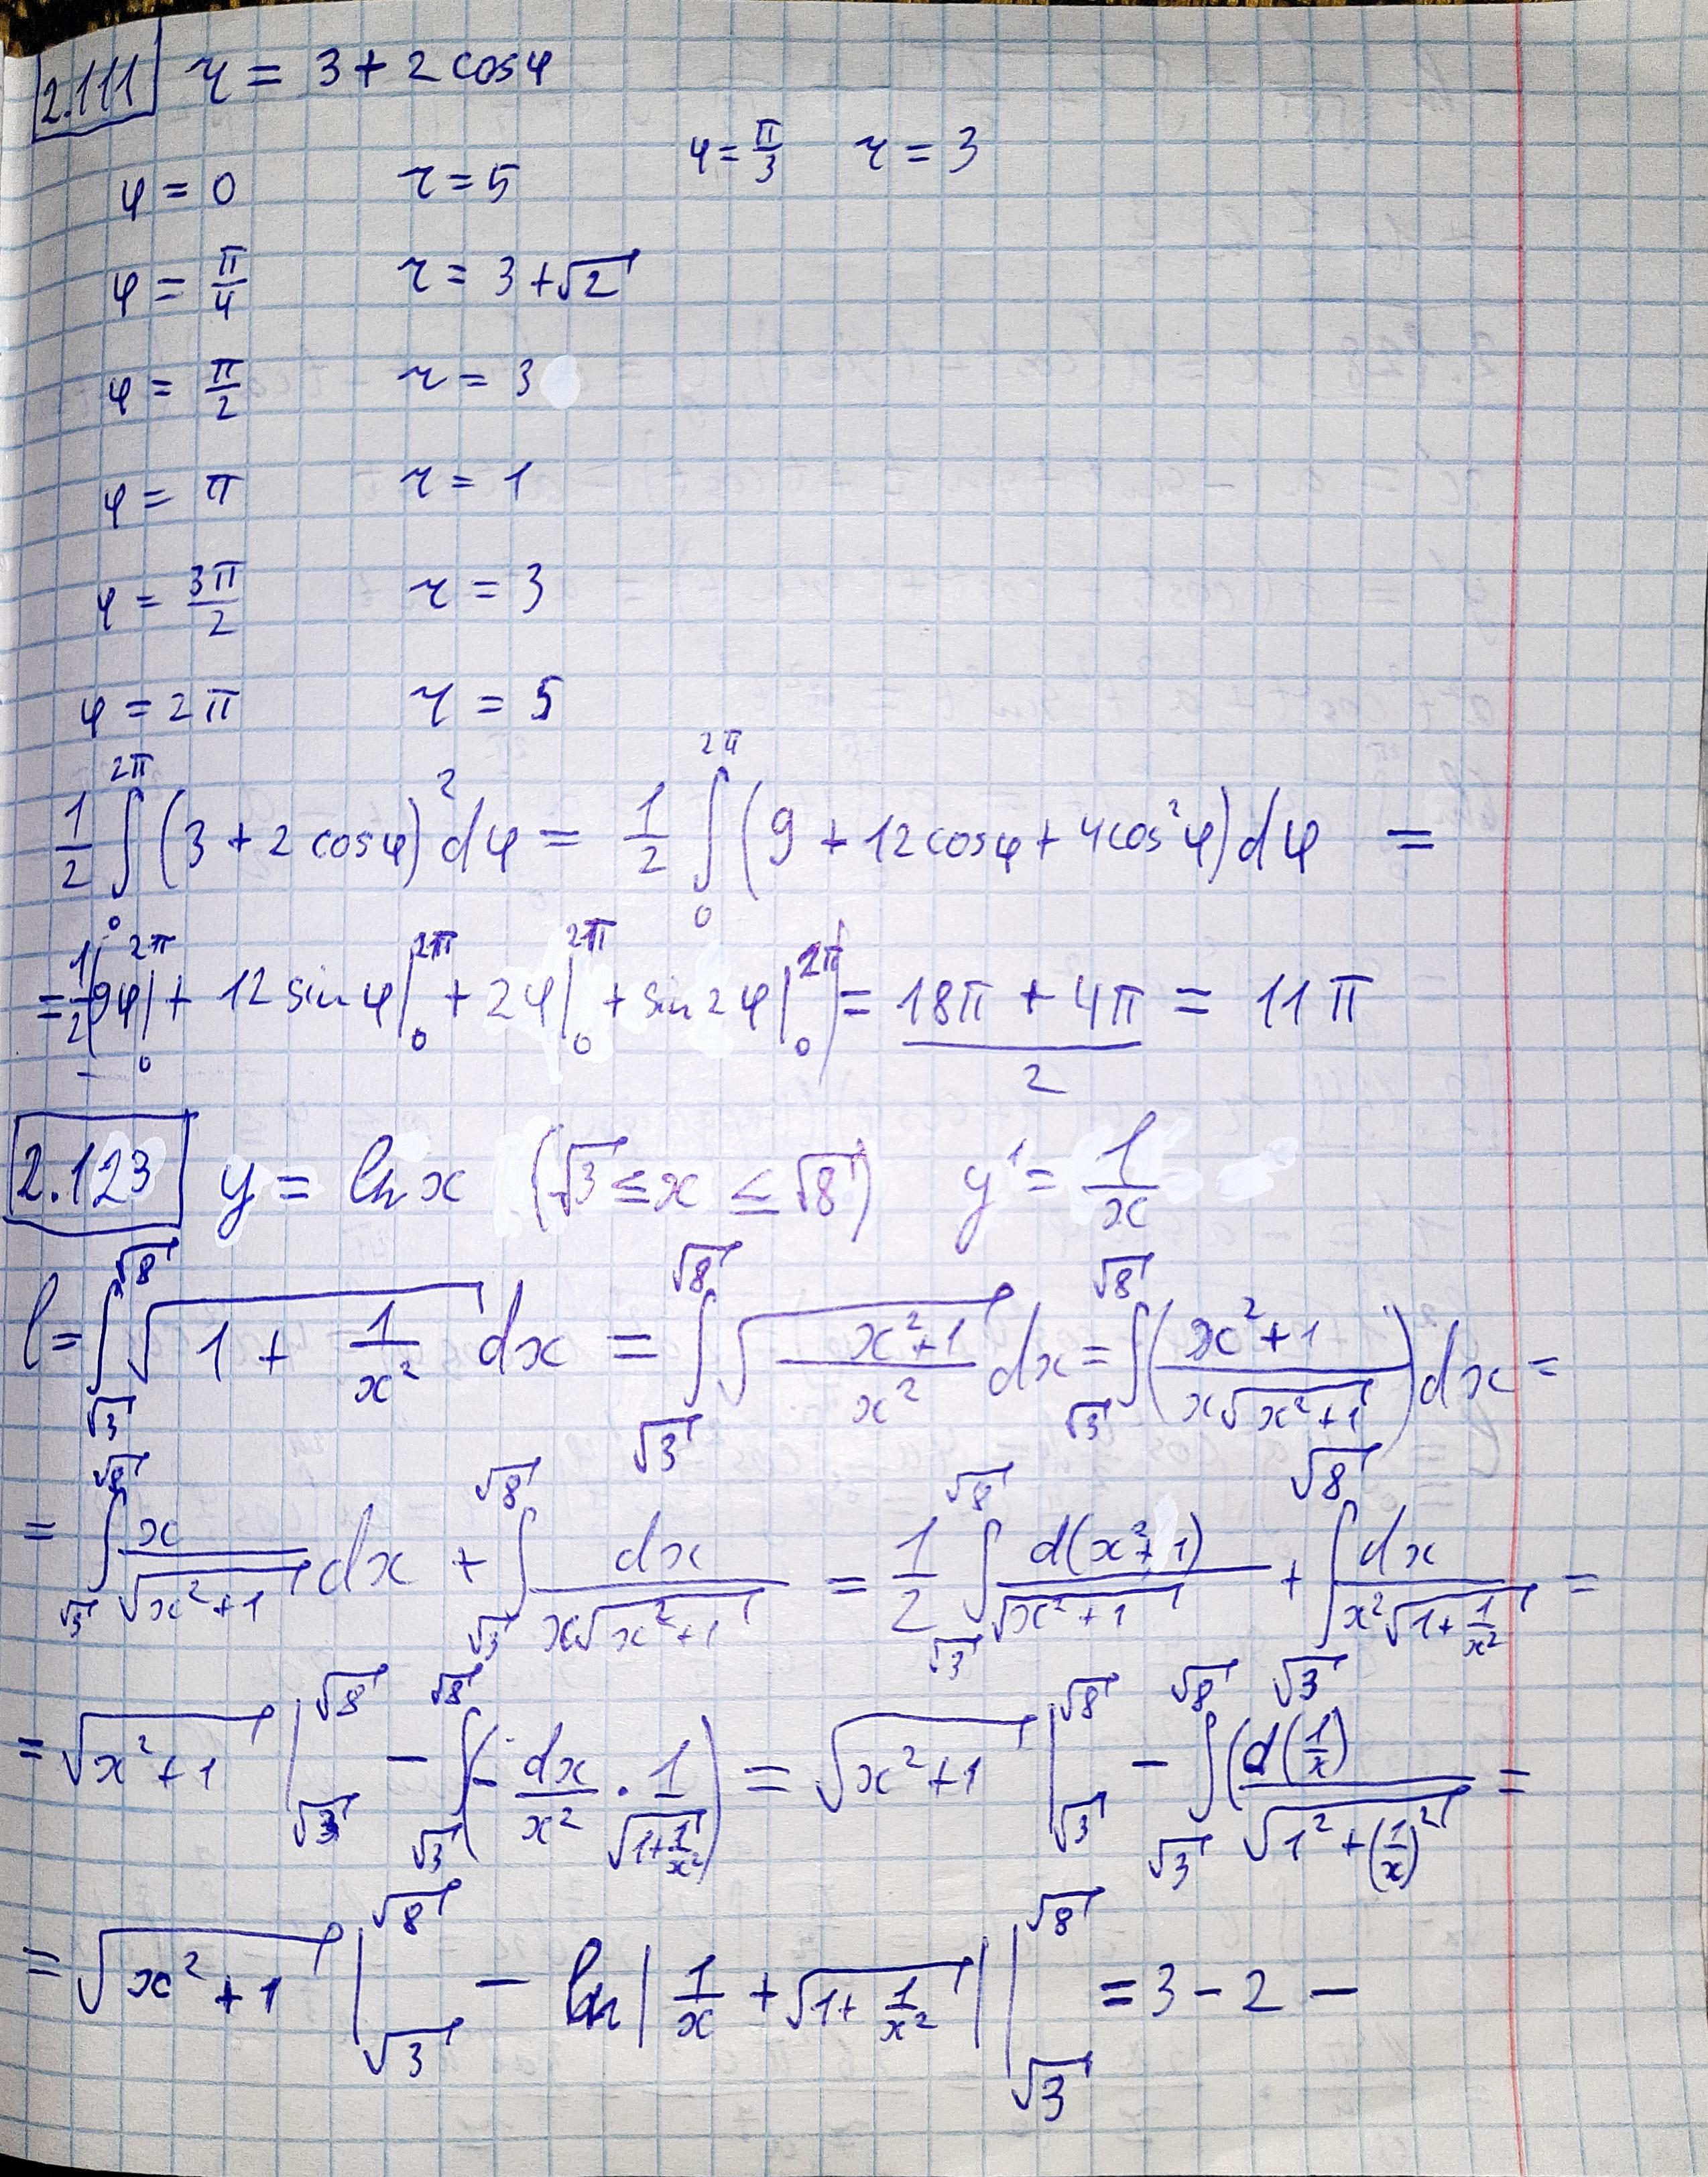 2.111 r = 3 + 2 cos φ
φ = π/3 r = 3
φ = 0 r = 5
φ = π/4 r = 3 + √2
φ = π/2 r = 3
φ = π r = 1
φ = 3π/2 r = 3
φ = 2π r = 5
1/2 ∫₀^{2π} (3 + 2 cos φ)² dφ = 1/2 ∫₀^{2π} (9 + 12 cos φ + 4 cos² φ) dφ =
= 1/2 (9φ|₀^{2π} + 12 sin φ|₀^{2π} + 2φ|₀^{2π} + sin 2φ|₀^{2π}) = (18π + 4π)/2 = 11π
2.123 y = ln x (√3 ≤ x ≤ √8) y' = 1/x
l = ∫_{√3}^{√8} √(1 + 1/x²) dx = ∫_{√3}^{√8} √((x²+1)/x²) dx = ∫_{√3}^{√8} ((x²+1)/(x√(x²+1))) dx =
= ∫_{√3}^{√8} x/√(x²+1) dx + ∫_{√3}^{√8} dx/(x√(x²+1)) = 1/2 ∫_{√3}^{√8} d(x²+1)/√(x²+1) + ∫_{√3}^{√8} dx/(x²√(1+1/x²)) =
= √(x²+1) |_{√3}^{√8} − ∫_{√3}^{√8} (− dx/x² · 1/√(1+1/x²)) = √(x²+1) |_{√3}^{√8} − ∫_{√3}^{√8} (d(1/x)/√(1²+(1/x)²) =
= √(x²+1) |_{√3}^{√8} − ln|1/x + √(1+1/x²)| |_{√3}^{√8} = 3 − 2 −